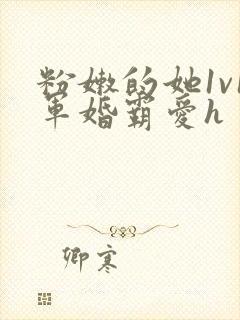 粉嫩的她1v1
军婚霸爱h
卿寒